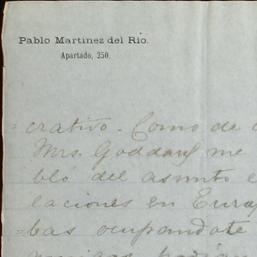 Pablo Martinez del Rio.
Apartado, 250.
crativo. Como de
Mrs. Goddard me
bló del asunto e
laciones en Euro
bas ocupandote